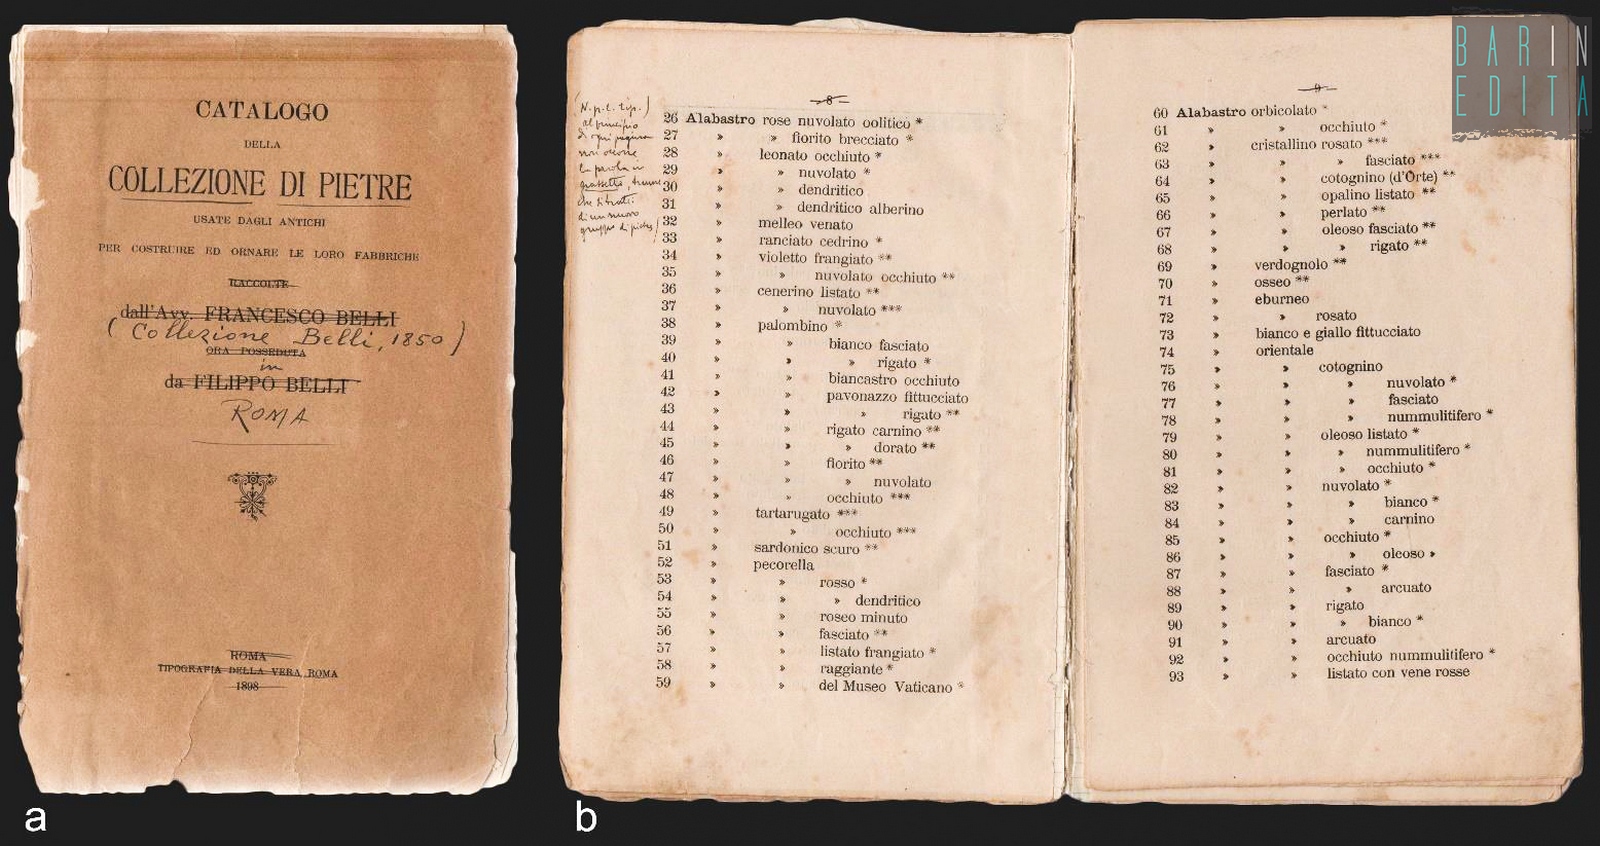 CATALOGO
DELLA
COLLEZIONE DI PIETRE
USATE DAGLI ANTICHI
PER COSTRUIRE ED ORNARE LE LORO FABBRICHE
RACCOLTE
dall'Avv. FRANCESCO BELLI
(Collezione Belli, 1850)
ORA POSSEDUTA
in
da FILIPPO BELLI
ROMA
ROMA
TIPOGRAFIA DELLA VERA ROMA
1898
a
— 8 —
(N.p.l. tip.)
al principio
di ogni pagina
non occorre
la parola in
grassetto, tranne
che si tratti
di un nuovo
gruppo di pietre)
26 Alabastro rose nuvolato oolitico *
27 » » fiorito brecciato *
28 » leonato occhiuto *
29 » » nuvolato *
30 » » dendritico
31 » » dendritico alberino
32 » melleo venato
33 » ranciato cedrino *
34 » violetto frangiato **
35 » » nuvolato occhiuto **
36 » cenerino listato **
37 » » nuvolato ***
38 » palombino *
39 » » bianco fasciato
40 » » » rigato *
41 » » biancastro occhiuto
42 » » pavonazzo fittucciato
43 » » » rigato **
44 » » rigato carnino **
45 » » » dorato **
46 » » fiorito **
47 » » » nuvolato
48 » » occhiuto ***
49 » tartarugato ***
50 » » occhiuto ***
51 » sardonico scuro **
52 » pecorella
53 » » rosso *
54 » » » dendritico
55 » » roseo minuto
56 » » fasciato **
57 » » listato frangiato *
58 » » raggiante *
59 » » del Museo Vaticano *
b
— 9 —
60 Alabastro orbicolato *
61 » » occhiuto *
62 » cristallino rosato ***
63 » » » fasciato ***
64 » » cotognino (d'Orte) **
65 » » opalino listato **
66 » » perlato **
67 » » oleoso fasciato **
68 » » » rigato **
69 » verdognolo **
70 » osseo **
71 » eburneo
72 » » rosato
73 » bianco e giallo fittucciato
74 » orientale
75 » » cotognino
76 » » » nuvolato *
77 » » » fasciato
78 » » » nummulitifero *
79 » » oleoso listato *
80 » » » nummulitifero *
81 » » » occhiuto *
82 » » nuvolato *
83 » » » bianco *
84 » » » carnino
85 » » occhiuto *
86 » » » oleoso »
87 » » fasciato *
88 » » » arcuato
89 » » rigato
90 » » » bianco *
91 » » arcuato
92 » » occhiuto nummulitifero *
93 » » listato con vene rosse
BARIN
EDITA